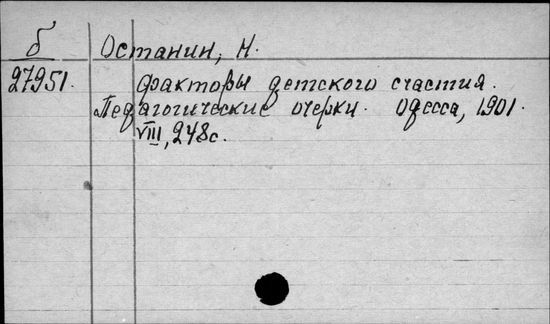 б Останин, Н.
27951. Факторы детского счастия.
Педагогические очерки. Одесса, 1901.
VIII, 248с.